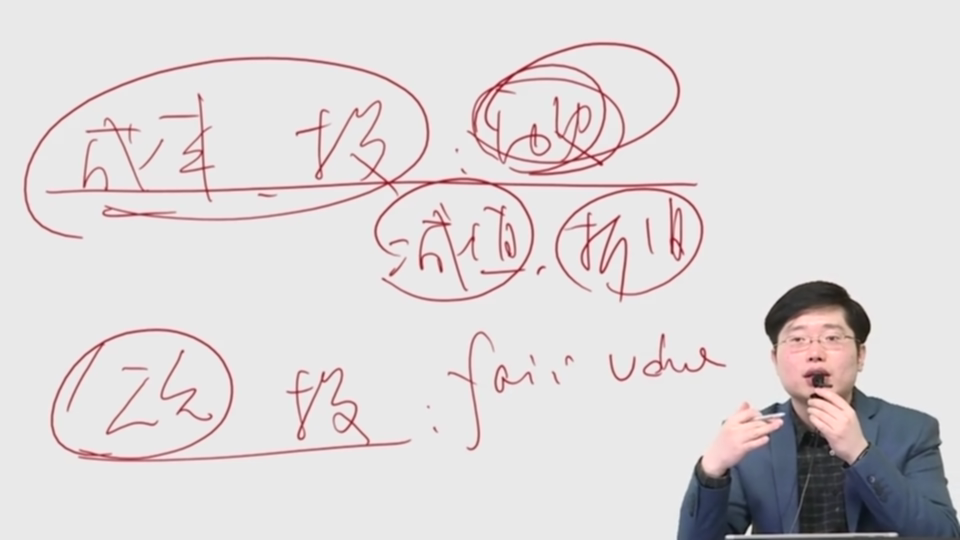 成本 投 :
减值. 折旧
公允 投 : fair value